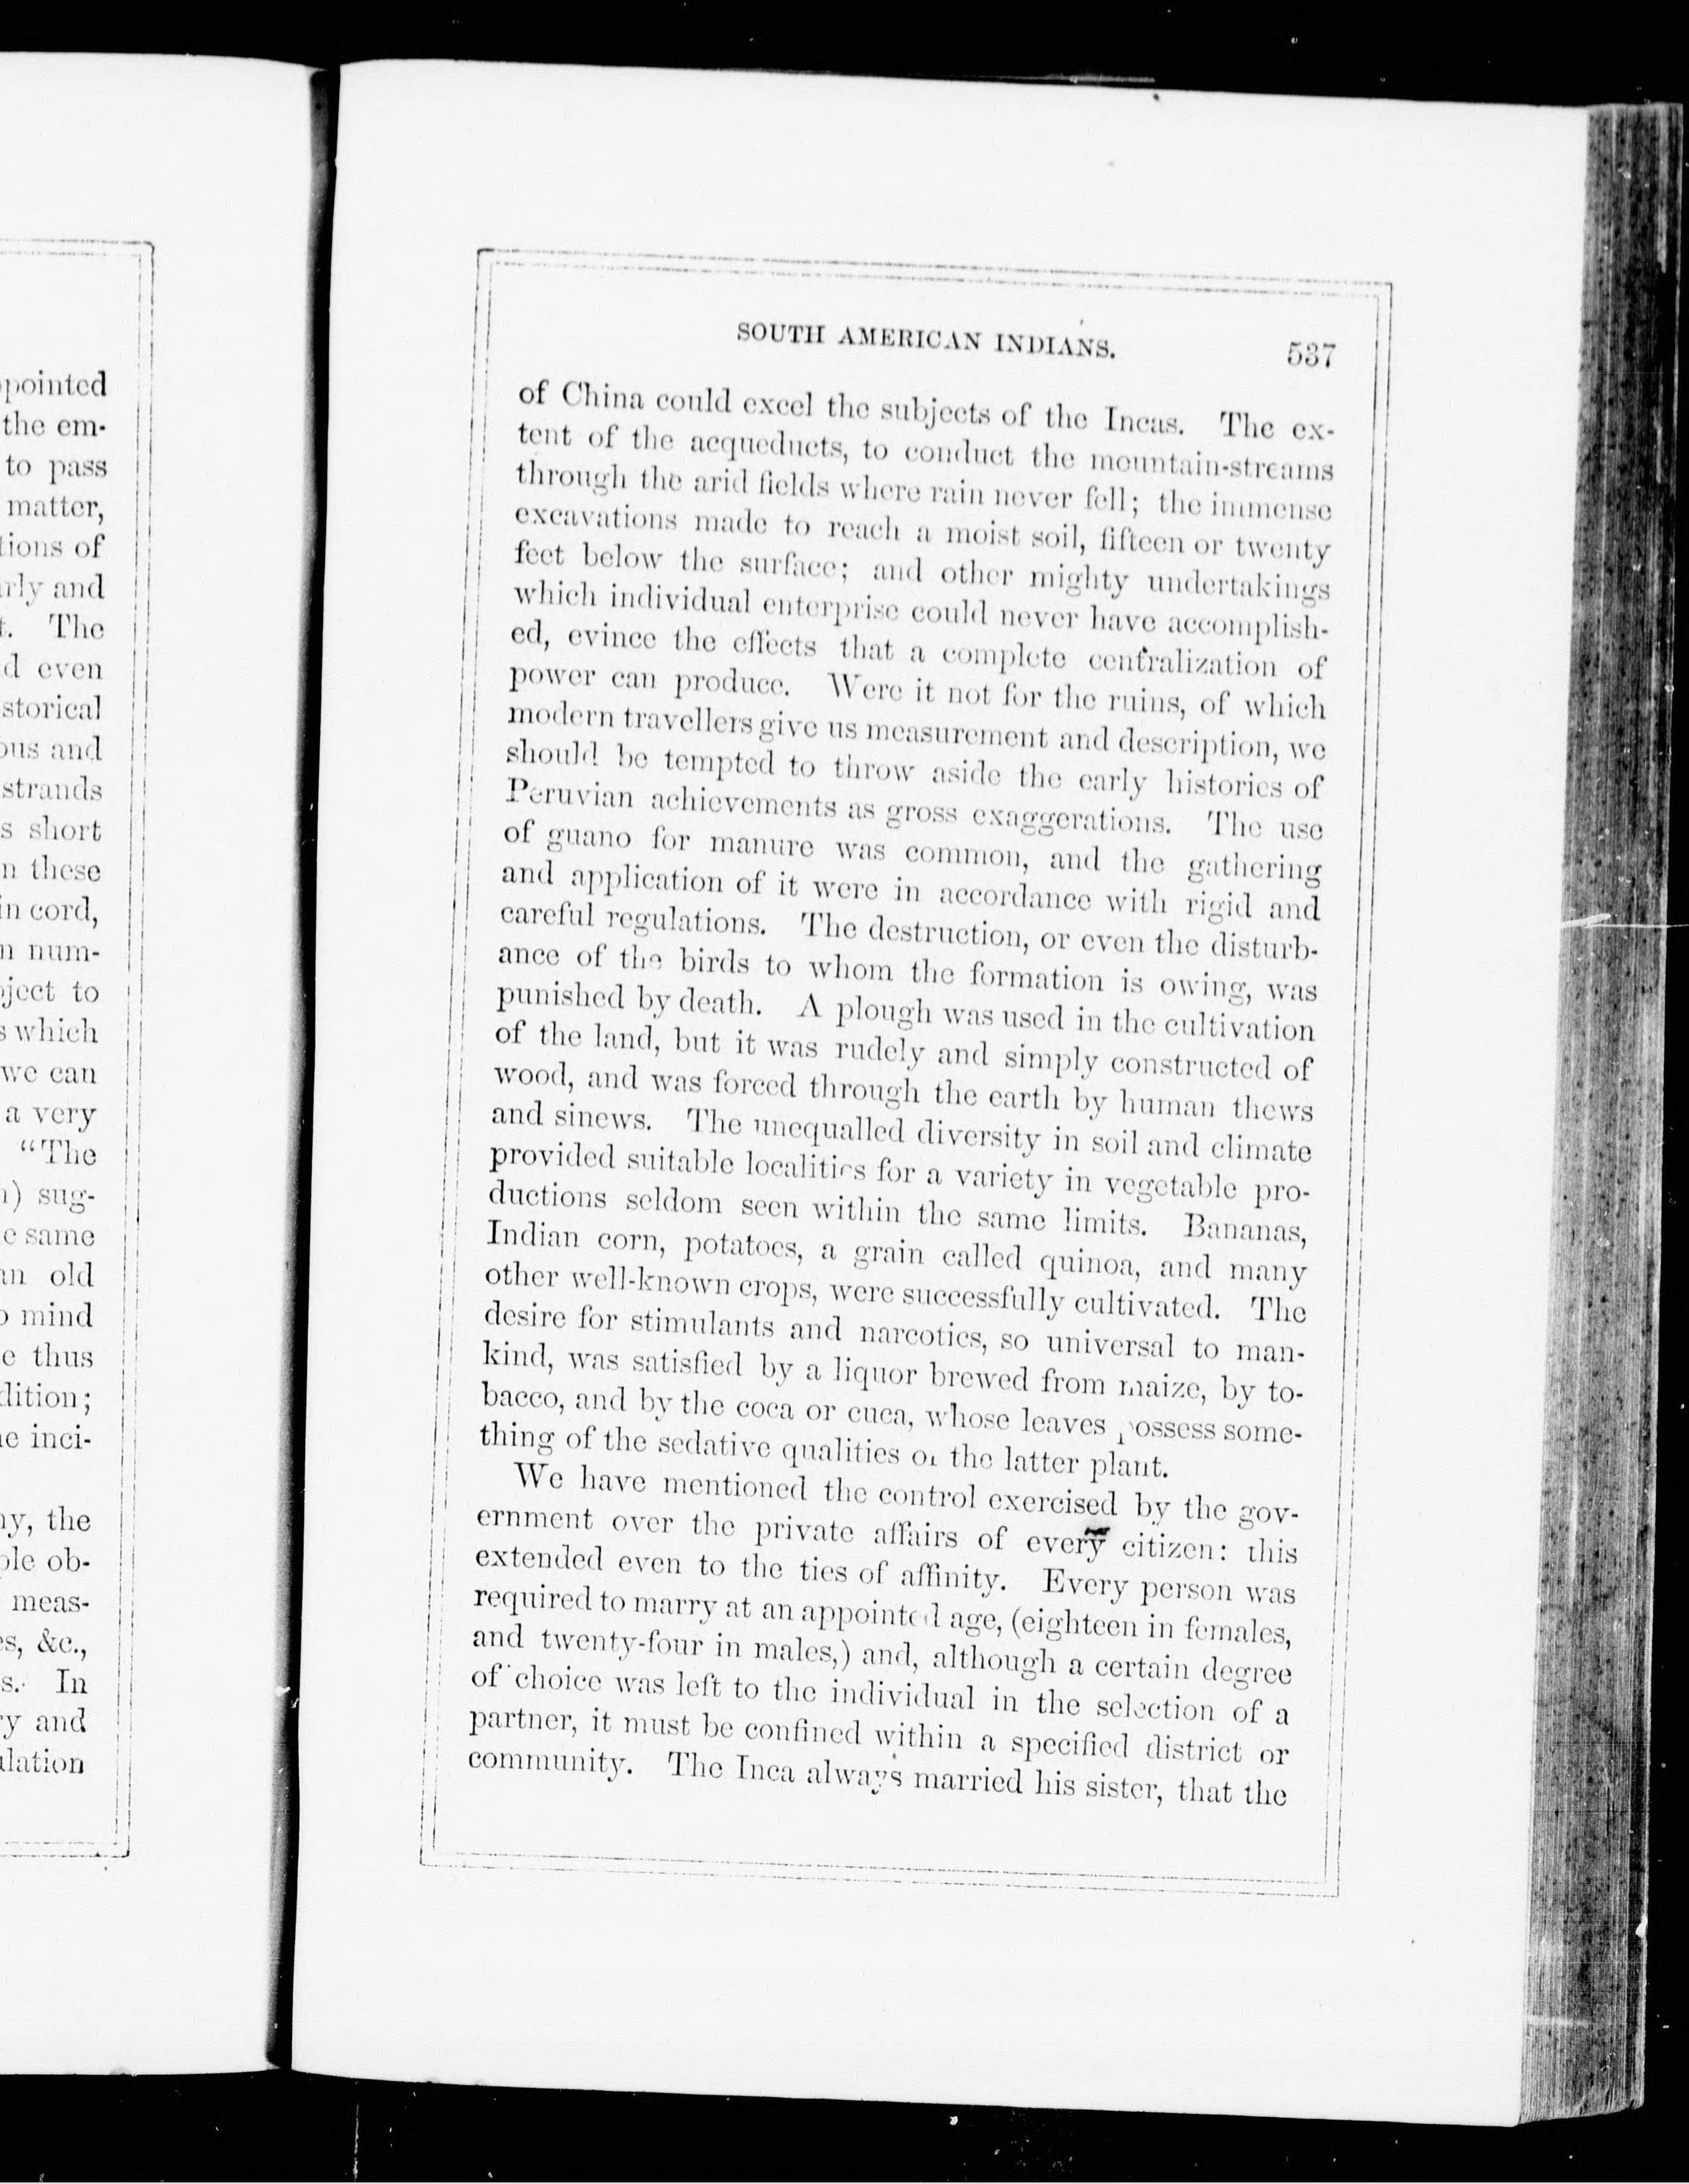 pointed
the em-
to pass
matter,
tions of
rly and
The
d even
storical
ous and
strands
s short
n these
in cord,
n num-
ject to
s which
we can
a very
"The
sug-
e same
an old
mind
e thus
dition;
e inci-
y, the
ple ob-
meas-
es, &c.,
s. In
ry and
ulation
SOUTH AMERICAN INDIANS. 537
of China could excel the subjects of the Incas. The ex-
tent of the acqueducts, to conduct the mountain-streams
through the arid fields where rain never fell; the immense
excavations made to reach a moist soil, fifteen or twenty
feet below the surface; and other mighty undertakings
which individual enterprise could never have accomplish-
ed, evince the effects that a complete centralization of
power can produce. Were it not for the ruins, of which
modern travellers give us measurement and description, we
should be tempted to throw aside the early histories of
Peruvian achievements as gross exaggerations. The use
of guano for manure was common, and the gathering
and application of it were in accordance with rigid and
careful regulations. The destruction, or even the disturb-
ance of the birds to whom the formation is owing, was
punished by death. A plough was used in the cultivation
of the land, but it was rudely and simply constructed of
wood, and was forced through the earth by human thews
and sinews. The unequalled diversity in soil and climate
provided suitable localities for a variety in vegetable pro-
ductions seldom seen within the same limits. Bananas,
Indian corn, potatoes, a grain called quinoa, and many
other well-known crops, were successfully cultivated. The
desire for stimulants and narcotics, so universal to man-
kind, was satisfied by a liquor brewed from maize, by to-
bacco, and by the coca or cuca, whose leaves possess some-
thing of the sedative qualities of the latter plant.
We have mentioned the control exercised by the gov-
ernment over the private affairs of every citizen: this
extended even to the ties of affinity. Every person was
required to marry at an appointed age, (eighteen in females,
and twenty-four in males,) and, although a certain degree
of choice was left to the individual in the selection of a
partner, it must be confined within a specified district or
community. The Inca always married his sister, that the